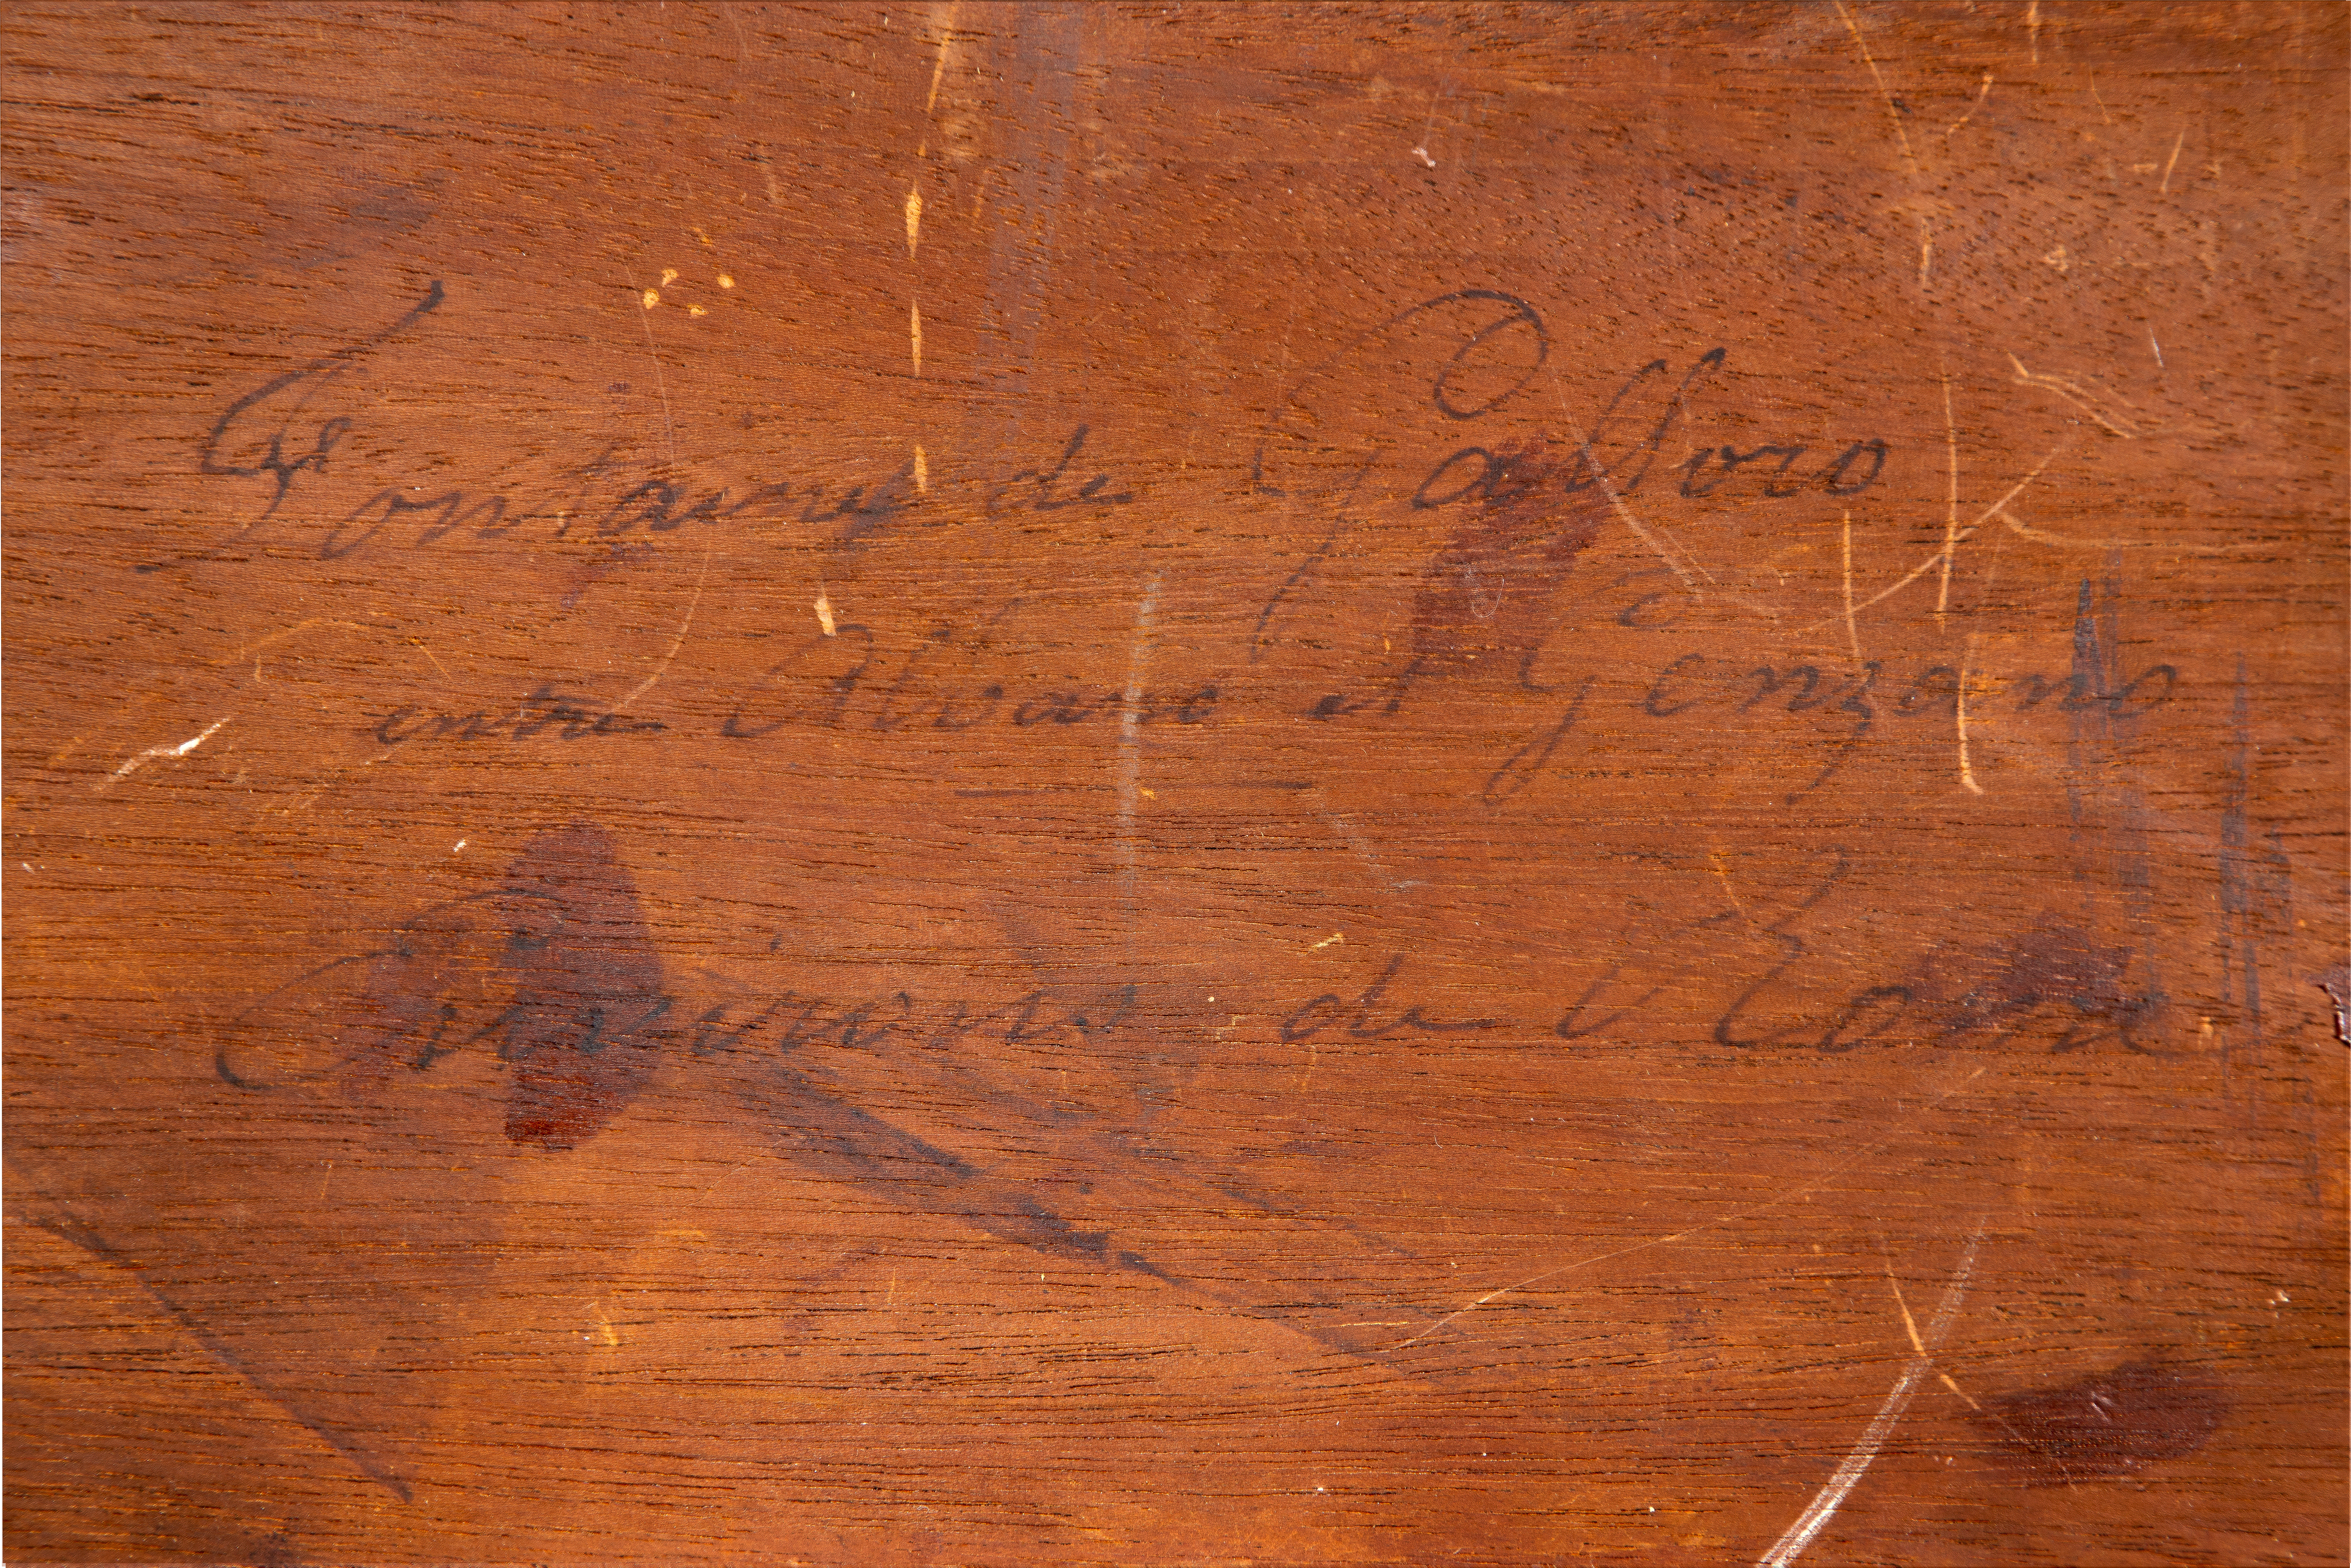 Fontaine de Galloro
entre Albano et Genzano
Environs de Rome